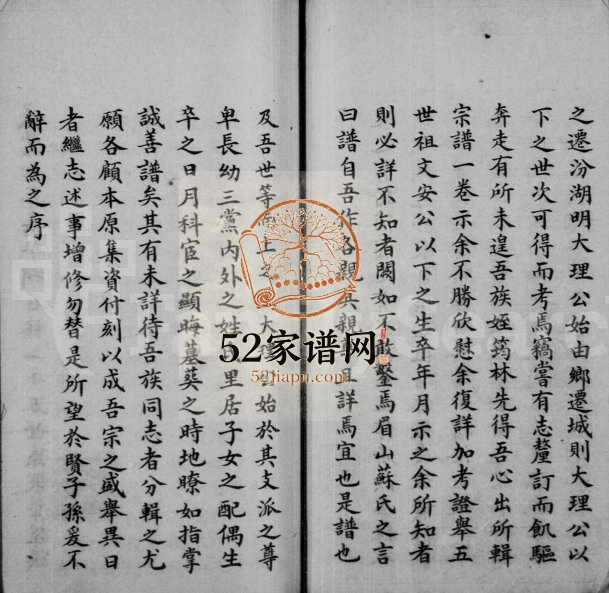 之遷汾湖明大理公始由鄉遷城則大理公以
下之世次可得而考焉竊嘗有志釐訂而飢驅
奔走有所未遑吾族姪筠林先得吾心出所輯
宗譜一卷示余不勝欣慰余復詳加考證舉五
世祖文安公以下之生卒年月示之余所知者
則必詳不知者闕如不敢鑿焉眉山蘇氏之言
曰譜自吾作各親其親且詳焉宜也是譜也
及吾世等而上之大理始於其支派之尊
卑長幼三黨內外之姓里居子女之配偶生
卒之日月科宦之顯晦墓葬之時地瞭如指掌
誠善譜矣其有未詳待吾族同志者分輯之尤
願各顧本原集資付刻以成吾宗之盛舉異日
者繼志述事增修勿替是所望於賢子孫爰不
辭而為之序
52家谱网
52jiapu.com